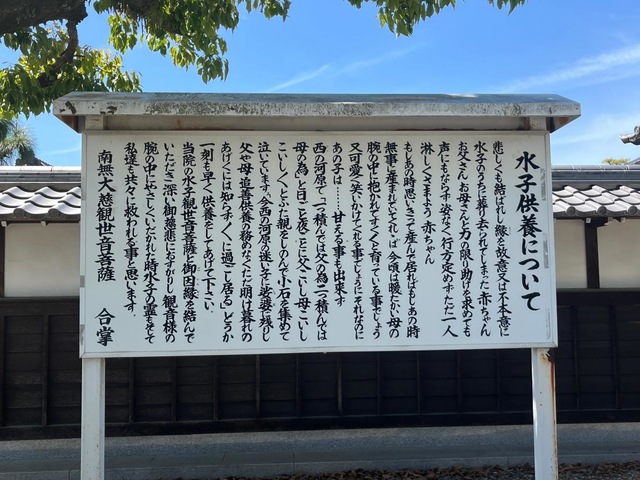 水子供養について
悲しくも結ばれし縁を故意に又は不本意に
水子のうちに葬り去られてしまった赤ちゃん
お父さんお母さんと力の限り助けを求めても
声にもならず姿なく行方定めずただ一人
淋しくさまよう赤ちゃん
もしあの時思いきって産んで居ればもしあの時
無事に産まれていてくれば今頃は暖たかい母の
腕の中に抱かれてすくすく育っている事でしょう
又可愛い笑いかけてくれる事でしょうにそれなのに
あの子は……甘える事も出来ず
西の河原で「一つ積んでは父の為二つ積んでは
母の為」と日ごと夜ごとに父こいし母こいし
こいしくとぶた親をしのんで小石を集めて
泣いています。今西の河原の迷い子に姿婆に残し
父や母追善供養の務めなくただ明け暮れの
あけくには知らずくに過ごし居る」どうか
一刻も早く供養をしてあげて下さい、
当院の水子観世音菩薩と御因縁を結んで
いただき深い御慈悲におすがりし観音様の
腕の中にやさしくいだかれた時水子の霊もそして
私達も共々に救われる事と思います。
南無大慈観世音菩薩　合掌